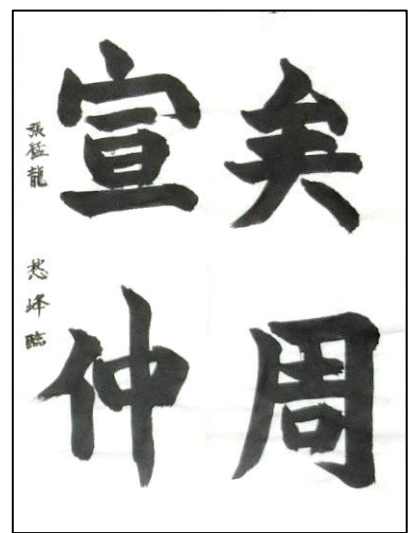 矣周
宣仲
張猛龍 峰臨